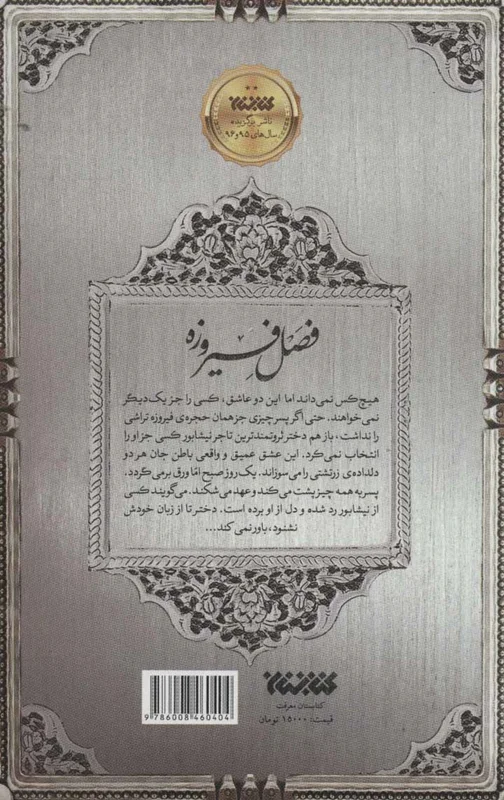 کتابستان
ناشر برگزیده
سال‌های ۹۵ و ۹۶
فصل فیروزه
هیچ کس نمی‌داند اما این دو عاشق، کسی را جز یک دیگر
نمی‌خواهند. حتی اگر پسر چیزی جز همان حجره‌ی فیروزه تراشی
را نداشت، باز هم دختر ثروتمندترین تاجر نیشابور کسی جز او را
انتخاب نمی‌کرد. این عشق عمیق و واقعی باطن جان هر دو
دلداده‌ی زرتشتی را می‌سوزاند. یک روز صبح اما ورق برمی‌گردد.
پسر به همه چیز پشت می‌کند و عهد می‌شکند. می‌گویند کسی
از نیشابور رد شده و دل از او برده است. دختر تا از زبان خودش
نشنود، باور نمی‌کند...
کتابستان
کتابستان معرفت
قیمت: ۱۵۰۰۰ تومان
9 786008 460404